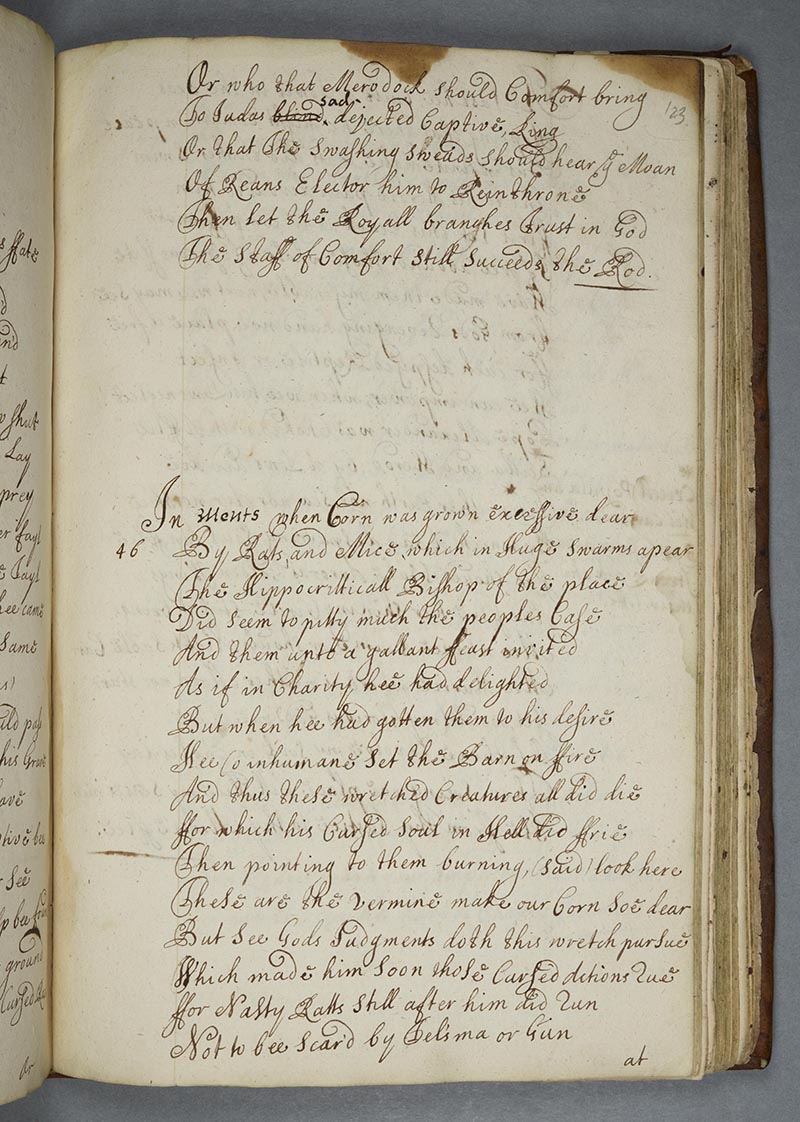 Or who that Merodock should Comfort bring
123
To Judas blind sad dejected Captive, King
Or that The Swashing Sweads should hear ye Moan
Of Reans Elector him to Reinthrone
Then let the Royall branches Trust in God
The Staff of Comfort Still Succeeds the Rod.
In Ments when Corn was grown excessive dear
46 By Rats, and Mice, which in Huge Swarms apear
The Hippocritticall Bishop of the place
Did Seem to pitty much the peoples Case
And them unto a gallant ffeast invited
As if in Charity hee had delighted
But when hee had gotten them to his desire
Hee (o inhumane Set the Barn on ffire
And thus these wretched Creatures all did die
ffor which his Cursed Soul in Hell did ffrie
Then pointing to them burning, (said) look here
These are the vermine make our Corn Soe dear
But See Gods Judgments doth this wretch pursue
Which made him Soon those Cursed Actions Rue
ffor Nasty Ratts Still after him did Run
Not to bee Scar'd by Telsma or Gun
at
s ffate
shut
Lay
prey
hee came
Same
his Grave
See
ground
Ar